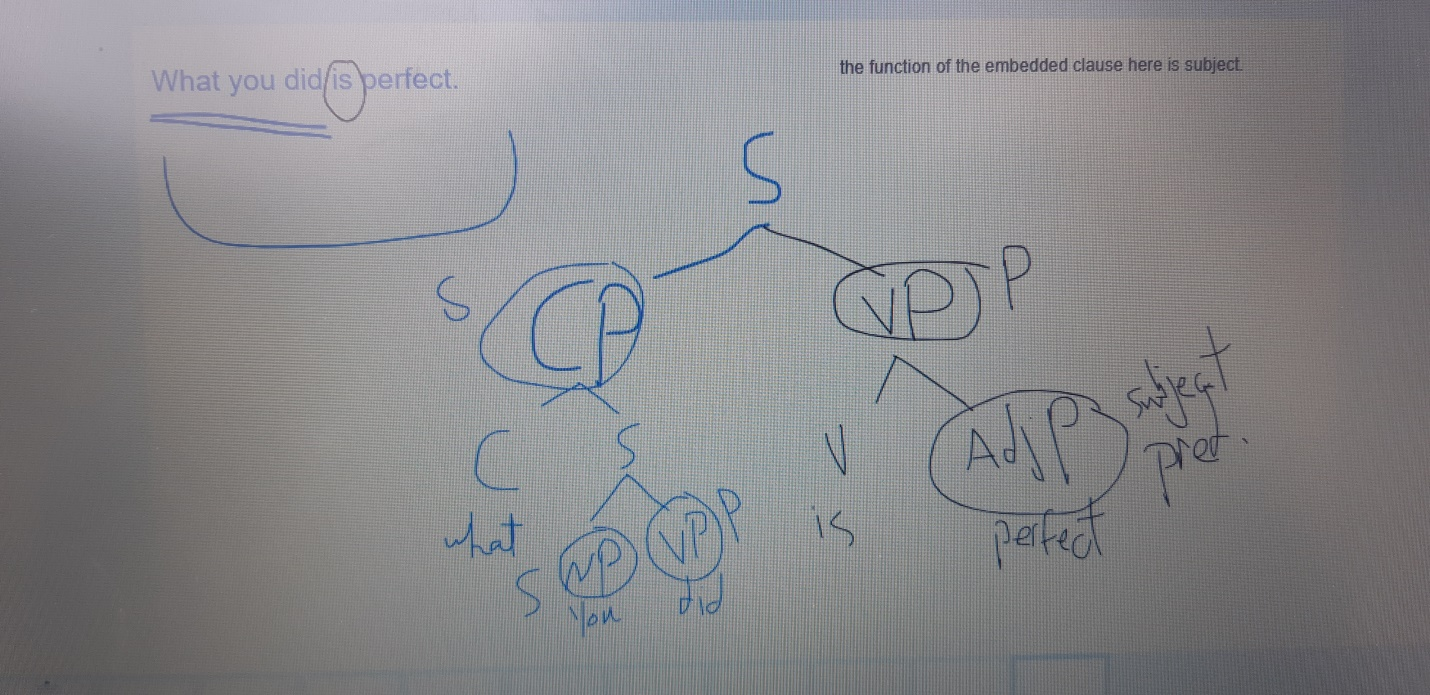 What you did is perfect.
the function of the embedded clause here is subject.
S
S CP VP P
C S V AdjP subject pred.
what is perfect
S NP VP P
you did